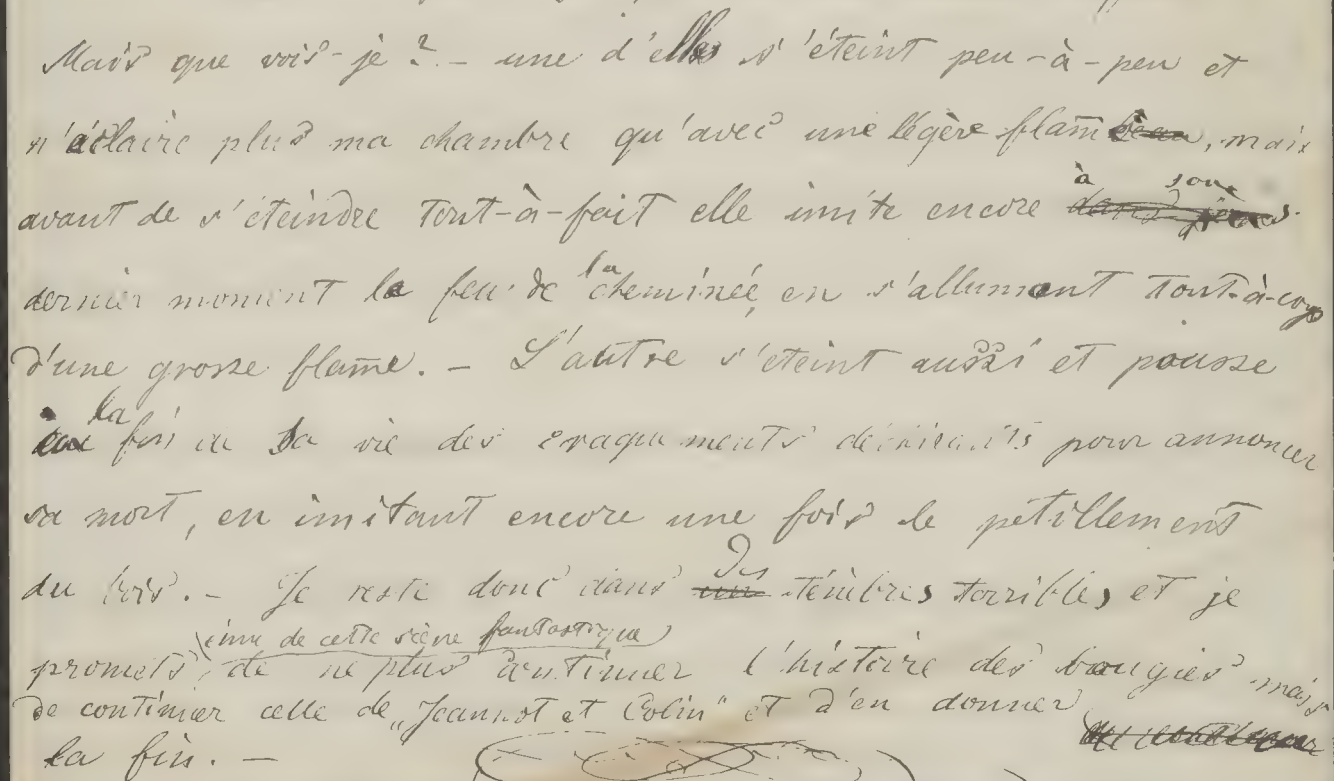 Mais que vois-je? – une d'elles s'éteint peu-à-peu et
n'éclaire plus ma chambre qu'avec une légère flam̄e, mais
avant de s'éteindre tout-à-fait elle imite encore à son
dernier moment le feu de la cheminée, en s'allumant tout-à-coup
d'une grosse flam̄e. – L'autre s'éteint aussi et pousse
à la fin de sa vie des craquements déchirants pour annoncer
sa mort, en imitant encore une fois le pétillement
du bois. – Je reste donc dans des ténèbres terribles, et je
(ému de cette scène fantastique)
promets, de ne plus continuer l'histoire des bougies mais
de continuer celle de „Jeannot et Colin" et d'en donner
la fin. –